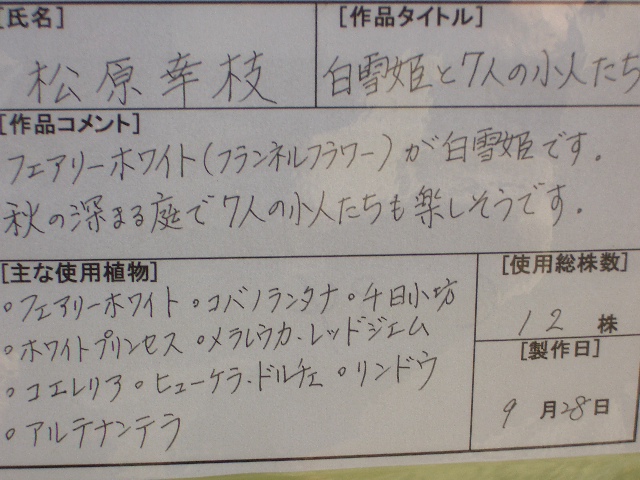 [氏名]
[作品タイトル]
松原幸枝
白雪姫と7人の小人たち
[作品コメント]
フェアリーホワイト(フランネルフラワー)が白雪姫です。
秋の深まる庭で7人の小人たちも楽しそうです。
[主な使用植物]
・フェアリーホワイト ・コバノランタナ ・千日小坊
・ホワイトプリンセス ・メラレウカ・レッドジェム
・コエレリア ・ヒューケラ・ドルチェ ・リンドウ
・アルテナンテラ
[使用総株数]
12 株
[製作日]
9 月28日